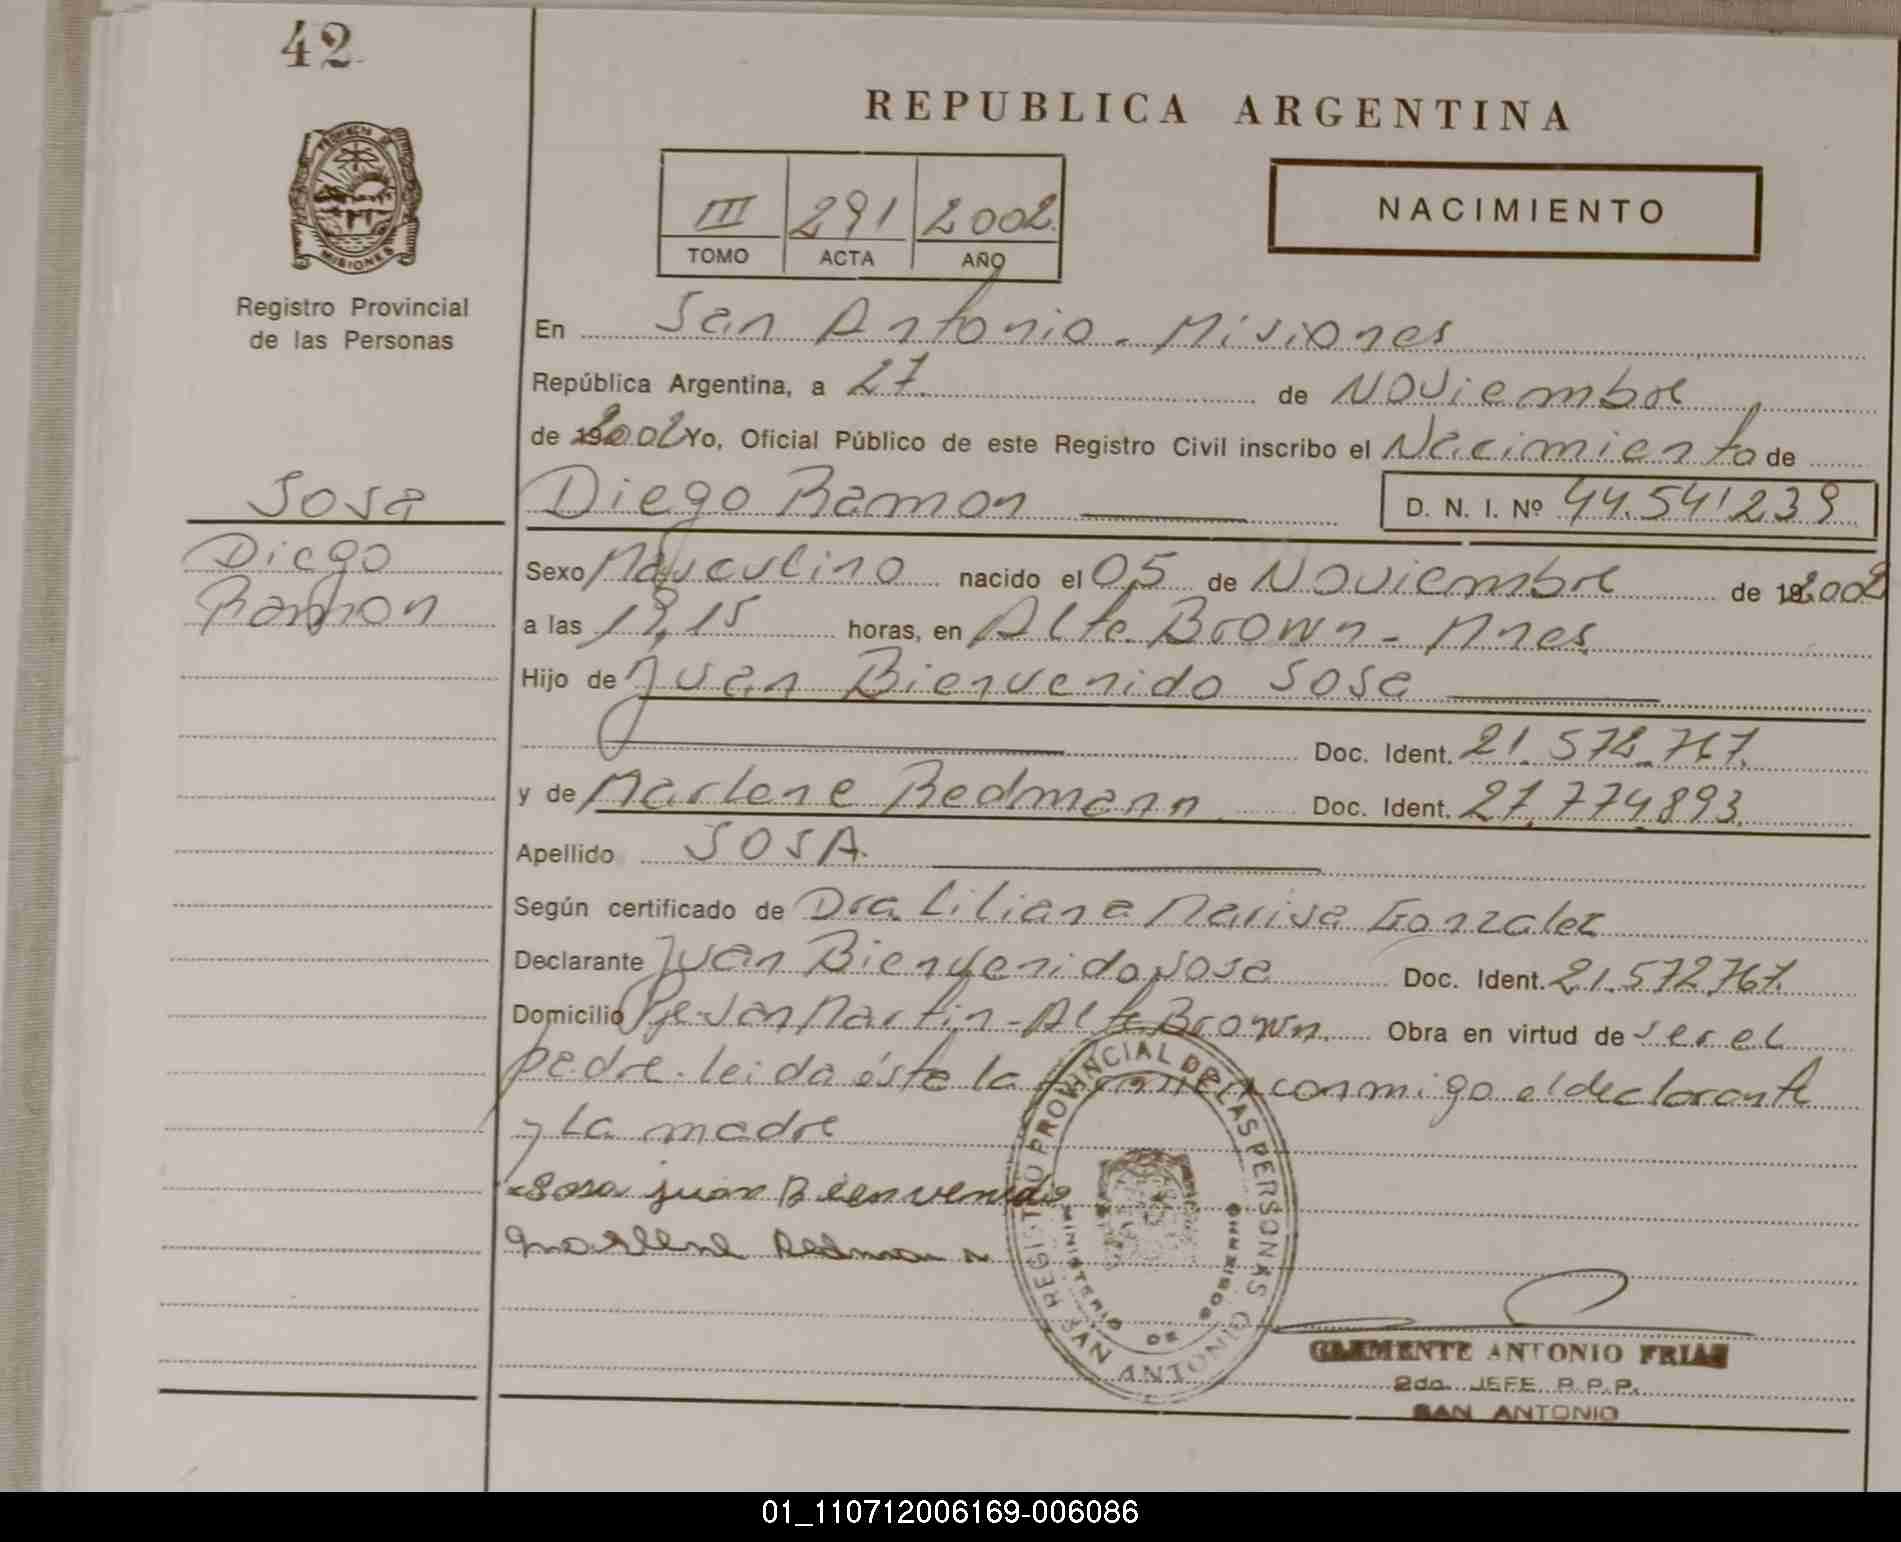 42
REPUBLICA ARGENTINA
PROVINCIA DE
MISIONES
III 291 2002
TOMO ACTA AÑO
NACIMIENTO
Registro Provincial
de las Personas
En San Antonio - Misiones
República Argentina, a 27 de Noviembre
de 2002 Yo, Oficial Público de este Registro Civil inscribo el Nacimiento de
Sosa
Diego Ramon D. N. I. Nº 44.541239
Diego
Ramon
Sexo Masculino nacido el 05 de Noviembre de 2002
a las 19,15 horas, en Alte Brown - Mnes
Hijo de Juan Bienvenido Sosa
Doc. Ident. 21.572.767.
y de Marlene Redmann Doc. Ident. 27.774.893.
Apellido SOSA.
Según certificado de Dra Liliana Marisa Gonzalez
Declarante Juan Bienvenido Sosa Doc. Ident. 21.572767.
Domicilio Pje San Martin - Alte Brown. Obra en virtud de ser el
padre. leida ésta la firman conmigo el declarante
y La madre
Sosa juan Bienvenido
marlene Redman n
REGISTRO PROVINCIAL DE LAS PERSONAS
MINISTERIO DE GOBIERNO
SAN ANTONIO
CLEMENTE ANTONIO FRIAS
2do. JEFE R.P.P.
SAN ANTONIO
01_110712006169-006086